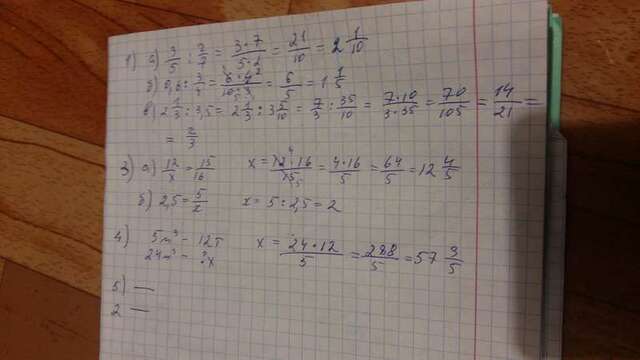 1) а) 3/5 : 2/7 = 3·7/5·2 = 21/10 = 2 1/10
б) 0,6 : 3/4 = 6·4/10·3 = 6/5 = 1 1/5
в) 2 1/3 : 3,5 = 2 1/3 : 3 5/10 = 7/3 : 35/10 = 7·10/3·35 = 70/105 = 14/21 =
= 2/3
3) а) 12/x = 15/16 x = 12·16/15 = 4·16/5 = 64/5 = 12 4/5
б) 2,5 = 5/x x = 5 : 2,5 = 2
4) 5м³ – 12
24м³ – ?x x = 24·12/5 = 288/5 = 57 3/5
5) —
2 —